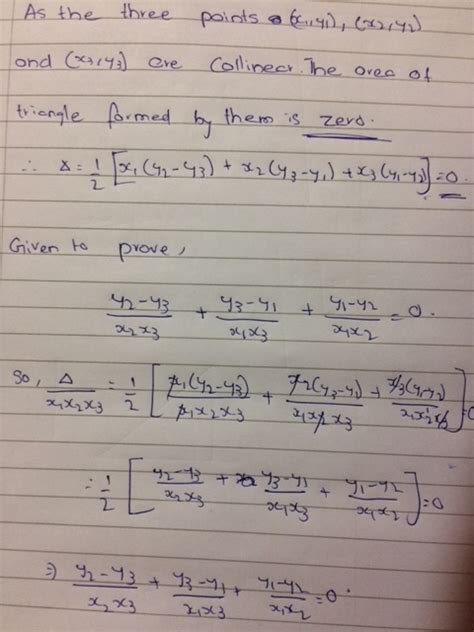 As the three points (x1,y1), (x2,y2)
and (x3,y3) are Collinear. The area of
triangle formed by them is zero.
∴ Δ = 1/2 [x1(y2-y3) + x2(y3-y1) + x3(y1-y2)] = 0.
Given to prove,
(y2-y3)/(x2x3) + (y3-y1)/(x1x3) + (y1-y2)/(x1x2) = 0.
So, Δ/(x1x2x3) = 1/2 [x1(y2-y3)/(x1x2x3) + x2(y3-y1)/(x1x2x3) + x3(y1-y2)/(x1x2x3)] = 0
= 1/2 [(y2-y3)/(x2x3) + (y3-y1)/(x1x3) + (y1-y2)/(x1x2)] = 0
⇒ (y2-y3)/(x2x3) + (y3-y1)/(x1x3) + (y1-y2)/(x1x2) = 0.